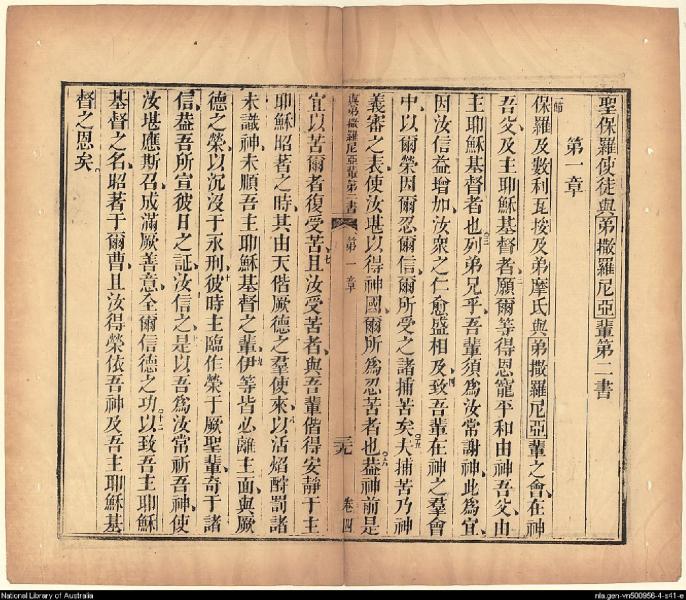 聖保羅使徒與弟撒羅尼亞輩第二書
第一章
保羅及數利瓦按及弟摩氏與弟撒羅尼亞輩之會在神
吾父及主耶穌基督者願爾等得恩寵平和由神吾父由
主耶穌基督者也列弟兄乎吾輩須為汝常謝神此為宜
因汝信益增加汝眾之仁愈盛相及致吾輩在神之羣會
中以爾榮因爾忍爾信爾所受之諸捕苦矣夫捕苦乃神
義審之表使汝堪以得神國爾所為忍苦者也葢神前是
真弟撒羅尼亞輩第二書 第一章 三九 卷四
宜以苦爾者復受苦且汝受苦者與吾輩偕得安靜于主
耶穌昭著之時其由天偕厥德之羣使來以活焰酧罰諸
未識神未順吾主耶穌基督之輩伊等皆必離主面與厥
德之榮以沉沒于永刑彼時主臨作榮于厥聖輩奇于諸
信葢吾所宣彼日之証汝信之是以吾為汝常祈吾神使
汝堪應斯召成滿厥善意全爾信德之功以致吾主耶穌
基督之名昭著于爾曹且汝得榮依吾神及吾主耶穌基
督之恩矣
National Library of Australia
nla.gen-vn500956-4-s41-e